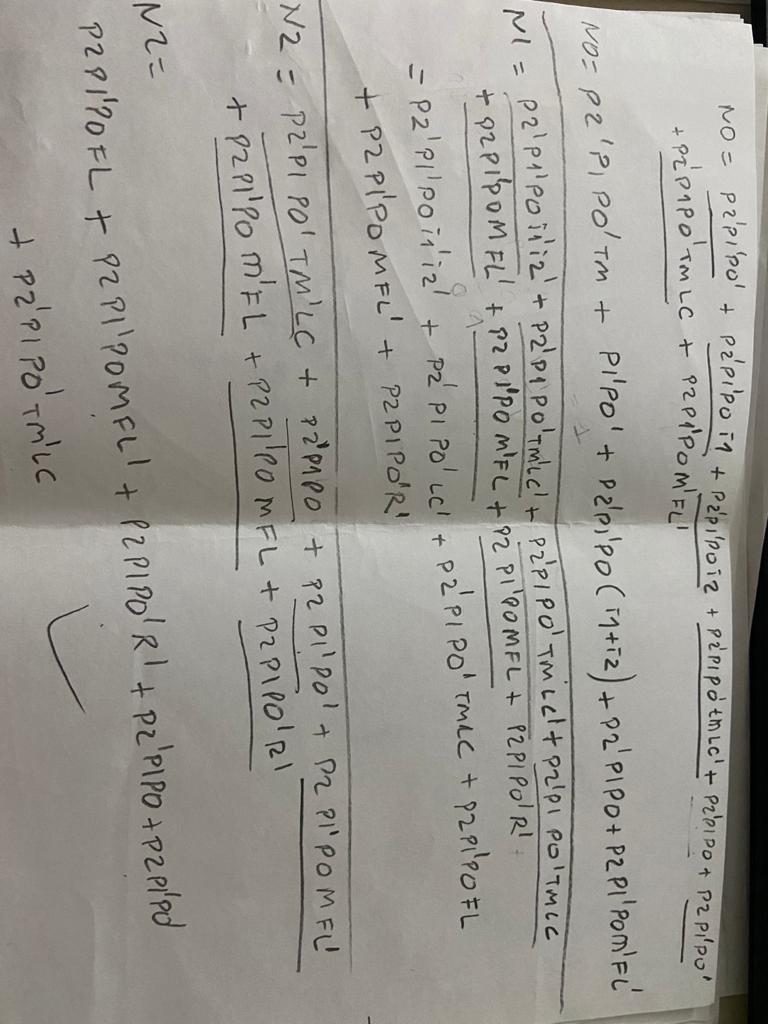 N0 = P2'P1'P0' + P2'P1'P0 i1 + P2'P1'P0 i2 + P2'P1P0'TMLC' + P2'P1P0 + P2P1'P0'
+ P2'P1P0'TMLC + P2P1'P0M'FL'
N0 = P2'P1P0'TM + P1'P0' + P2'P1'P0(i1+i2) + P2'P1P0 + P2P1'P0M'FL'
= 1
N1 = P2'P1'P0i1'i2' + P2'P1P0'TM'LC' + P2'P1P0'TMLC' + P2'P1P0'TMLC
+ P2P1'P0MFL' + P2P1'P0M'FL + P2P1'P0MFL + P2P1P0'R'
= P2'P1'P0i1'i2' + P2'P1P0'LC' + P2'P1P0'TMLC + P2P1'P0FL
+ P2P1'P0MFL' + P2P1P0'R'
N2 = P2'P1P0'TM'LC + P2'P1P0 + P2P1'P0' + P2P1'P0MFL'
+ P2P1'P0M'FL + P2P1'P0MFL + P2P1P0'R'
N2 =
P2P1'P0FL + P2P1'P0MFL' + P2P1P0'R' + P2'P1P0 + P2P1'P0'
+ P2'P1P0'TM'LC